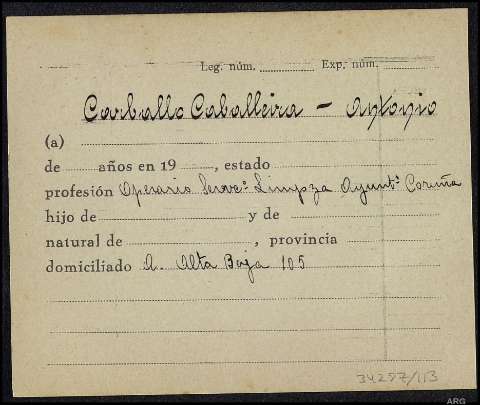 Leg. núm. Exp. núm.
Carballo Caballeira - Antonio
(a)
de años en 19 , estado
profesión Operario Servc.º Limpza Ayunt.º Coruña
hijo de y de
natural de , provincia
domiciliado A. Alta Baja 105
34.297/113
ARG